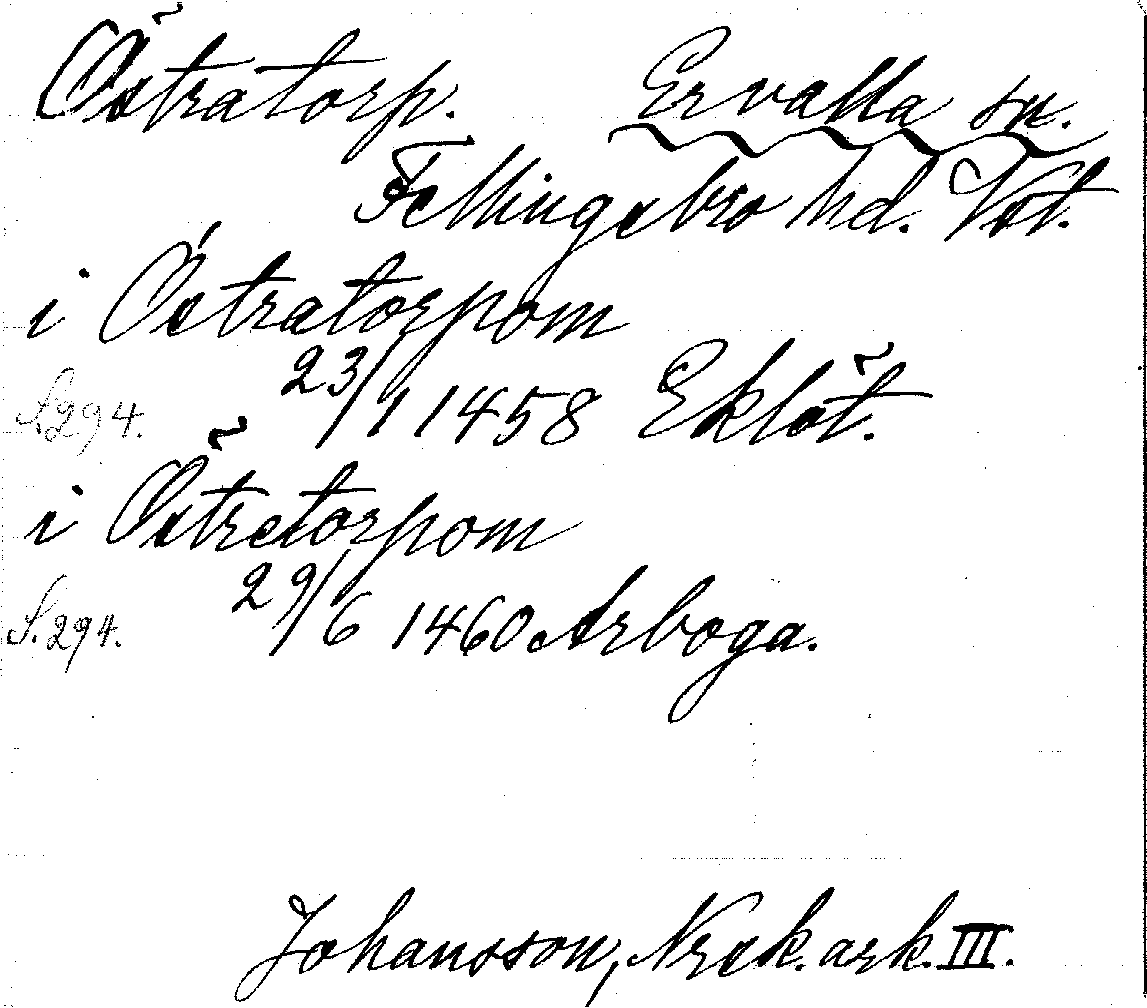 Östratorp. Ervalla sn.
Fellingsbro hd. Vstm.
i Östratorpom
23/1 1458 Eklöt.
S. 294.
i Östretorpom
29/6 1460 Arboga.
S. 294.
Johansson, Nrek. ark. III.